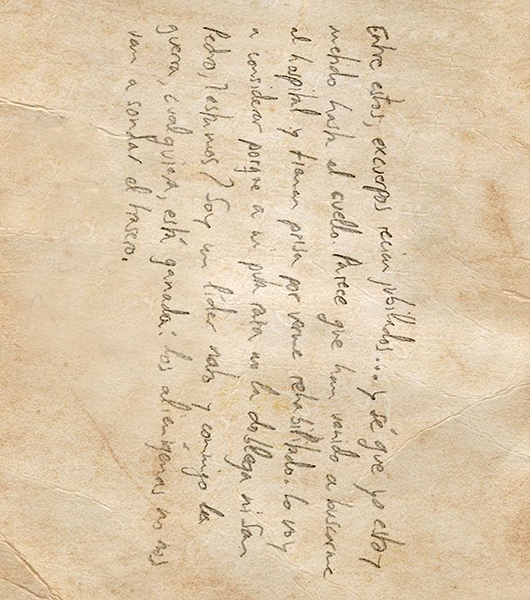 Entre estos, excuerpos recien jubilados... y sé que yo estoy
metido hasta el cuello. Parece que han venido a buscarme
al hospital y tienen prisa por verme rehabilitado. Lo voy
a considerar porque a mi puta rata no la doblega ni San
Pedro, ¿estamos? Soy un líder nato y conmigo la
guerra, cualquiera, está ganada. Los alienígenas no nos
van a sondar el trasero.